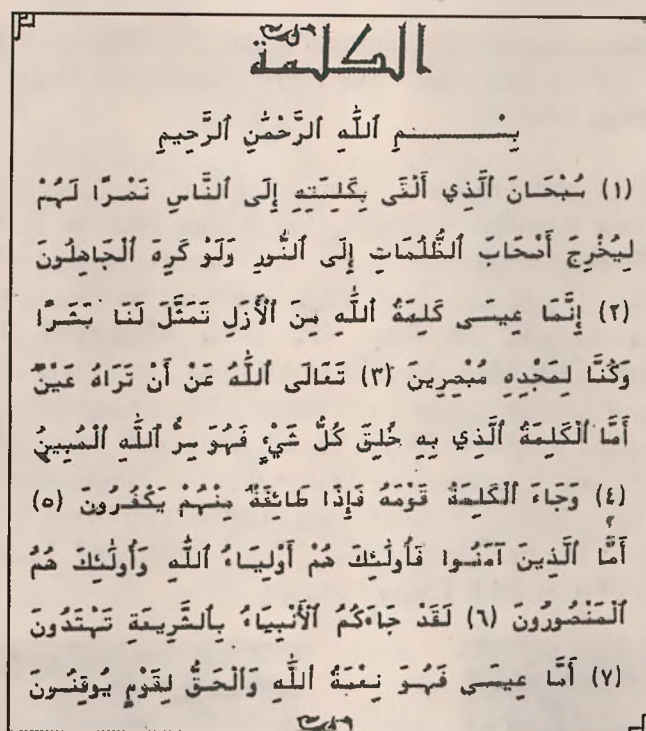 الكلمة
بِسْمِ ٱللَّهِ ٱلرَّحْمَٰنِ ٱلرَّحِيمِ
(١) سُبْحَانَ ٱلَّذِي أَلْقَى بِكَلِمَتِهِ إِلَى ٱلنَّاسِ نَصْرًا لَهُمْ
لِيُخْرِجَ أَصْحَابَ ٱلظُّلُمَاتِ إِلَى ٱلنُّورِ وَلَوْ كَرِهَ ٱلْجَاهِلُونَ
(٢) إِنَّمَا عِيسَى كَلِمَةُ ٱللَّهِ مِنَ ٱلْأَزَلِ تَمَثَّلَ لَنَا بَشَرًا
وَكُنَّا لِمَجْدِهِ مُبْصِرِينَ (٣) تَعَالَى ٱللَّهُ عَنْ أَنْ تَرَاهُ عَيْنٌ
أَمَّا ٱلْكَلِمَةُ ٱلَّذِي بِهِ خُلِقَ كُلُّ شَيْءٍ فَهُوَ سِرُّ ٱللَّهِ ٱلْمُبِينُ
(٤) وَجَاءَ ٱلْكَلِمَةُ قَوْمَهُ فَإِذَا طَائِفَةٌ مِنْهُمْ يَكْفُرُونَ (٥)
أَمَّا ٱلَّذِينَ آمَنُوا فَأُولَٰئِكَ هُمْ أَوْلِيَاءُ ٱللَّهِ وَأُولَٰئِكَ هُمُ
ٱلْمَنْصُورُونَ (٦) لَقَدْ جَاءَكُمُ ٱلْأَنْبِيَاءُ بِٱلشَّرِيعَةِ تَهْتَدُونَ
(٧) أَمَّا عِيسَى فَهُوَ نِعْمَةُ ٱللَّهِ وَٱلْحَقُّ لِقَوْمٍ يُوقِنُونَ